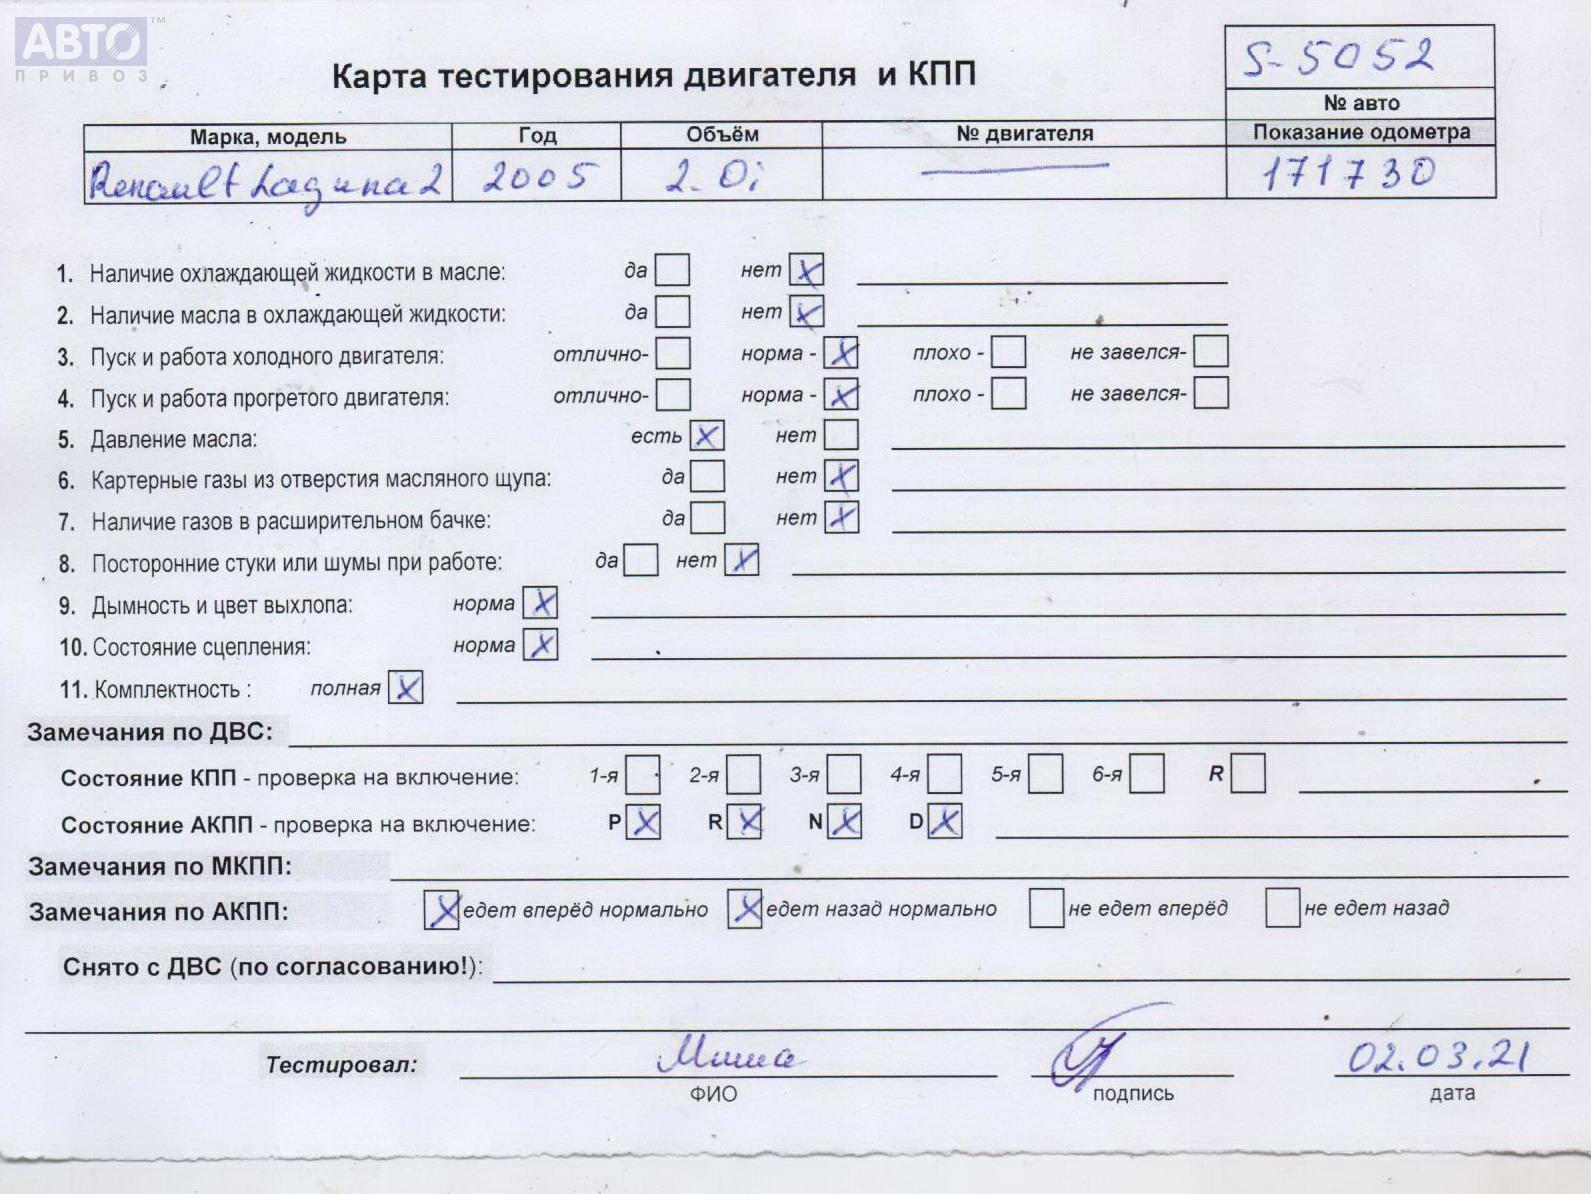 АВТО™
ПРИВОЗ
S-5052
Карта тестирования двигателя и КПП
№ авто
Марка, модель Год Объём № двигателя Показание одометра
Renault Laguna 2 2005 2.0i — 171730
1. Наличие охлаждающей жидкости в масле: да нет X
2. Наличие масла в охлаждающей жидкости: да нет X
3. Пуск и работа холодного двигателя: отлично- норма - X плохо - не завелся-
4. Пуск и работа прогретого двигателя: отлично- норма - X плохо - не завелся-
5. Давление масла: есть X нет
6. Картерные газы из отверстия масляного щупа: да нет X
7. Наличие газов в расширительном бачке: да нет X
8. Посторонние стуки или шумы при работе: да нет X
9. Дымность и цвет выхлопа: норма X
10. Состояние сцепления: норма X
11. Комплектность : полная X
Замечания по ДВС:
Состояние КПП - проверка на включение: 1-я 2-я 3-я 4-я 5-я 6-я R
Состояние АКПП - проверка на включение: P X R X N X D X
Замечания по МКПП:
Замечания по АКПП: X едет вперёд нормально X едет назад нормально не едет вперёд не едет назад
Снято с ДВС (по согласованию!):
Тестировал: Миша 02.03.21
ФИО подпись дата